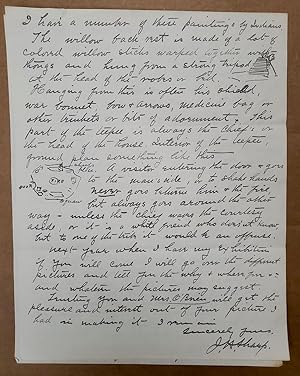 I have a number of these paintings by Indians
The willow back rest is made of a lot of
colored willow sticks warped together with
thongs and hung from a strong tripod
at the head of the robes or bed.
Hanging from this is often his shield,
war bonnet, bow & arrows, medicine bag or
other trinkets or bit of adornment. This
part of the tepee is always the Chief's or
the head of the house. Interior of the tepee,
ground plan something like this
A visitor entering the door & goes
to the male side, to shake hands
never goes between him & the fire,
but always goes around the other
way - unless the chief waves the courtesy
aside or it is a white friend who does not know
but to one of the tribe it would be an offense.
next year when I have my Exhibition
if you will come I will go over the different
pictures and tell for the why & wherefor --
and whatever the pictures may suggest.
Trusting you and Mrs. O'Brien will get the
pleasure and interest out of your picture I
had in making it I remain
Sincerely yours,
J. H. Sharp.